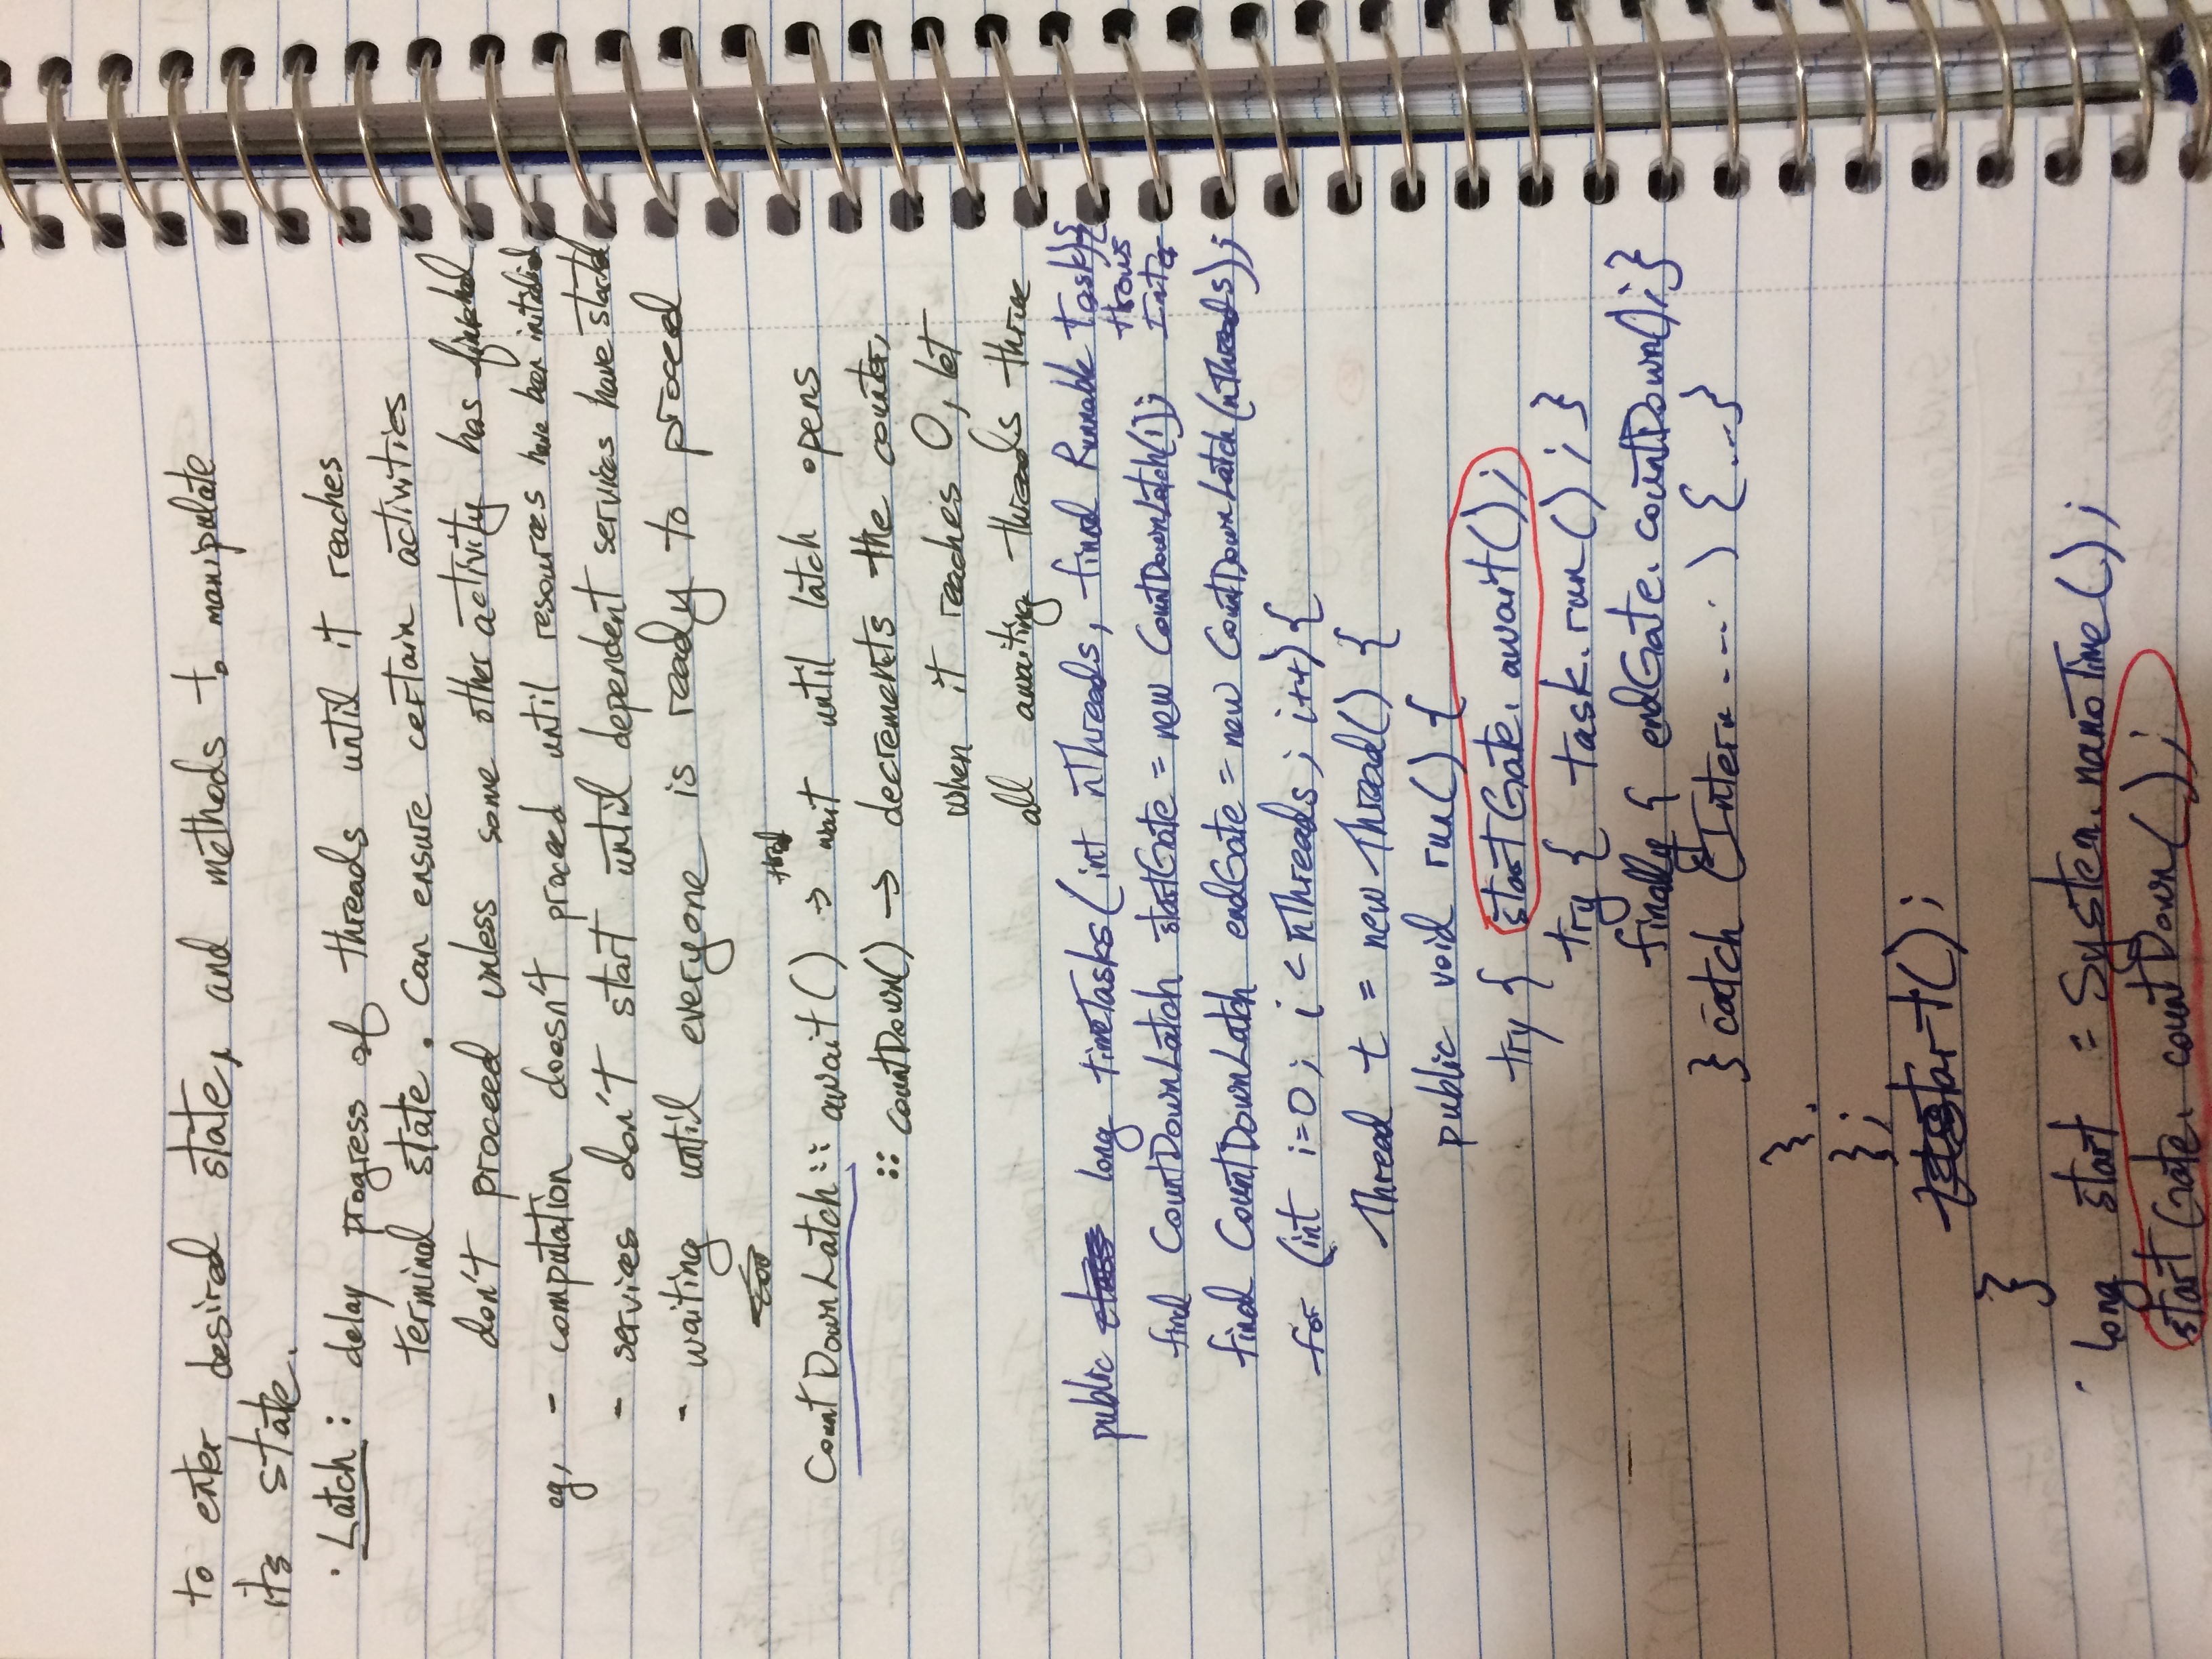 to enter desired state, and methods to manipulate
its state.
· Latch : delay progress of threads until it reaches
terminal state. Can ensure certain activities
don't proceed unless some other activity has finished
eg, - computation doesn't proceed until resources have been initialized
- services don't start until dependent services have started
- waiting until everyone is ready to proceed
thread
CountDownLatch :: await() → wait until latch opens
:: countDown() → decrements the counter,
when it reaches 0, let
all awaiting threads
public long timeTasks(int nThreads, final Runnable task){
throws
final CountDownLatch startGate = new CountDownLatch(1); Inter
final CountDownLatch endGate = new CountDownLatch(nThreads);
for (int i=0; i < nThreads; i++){
Thread t = new Thread() {
public void run() {
try { startGate.await();
try { task.run(); }
finally { endGate.countDown(); }
} catch (Interr ....) {...}
}
};
t.start();
}
long start = System.nanoTime();
startGate.countDown();